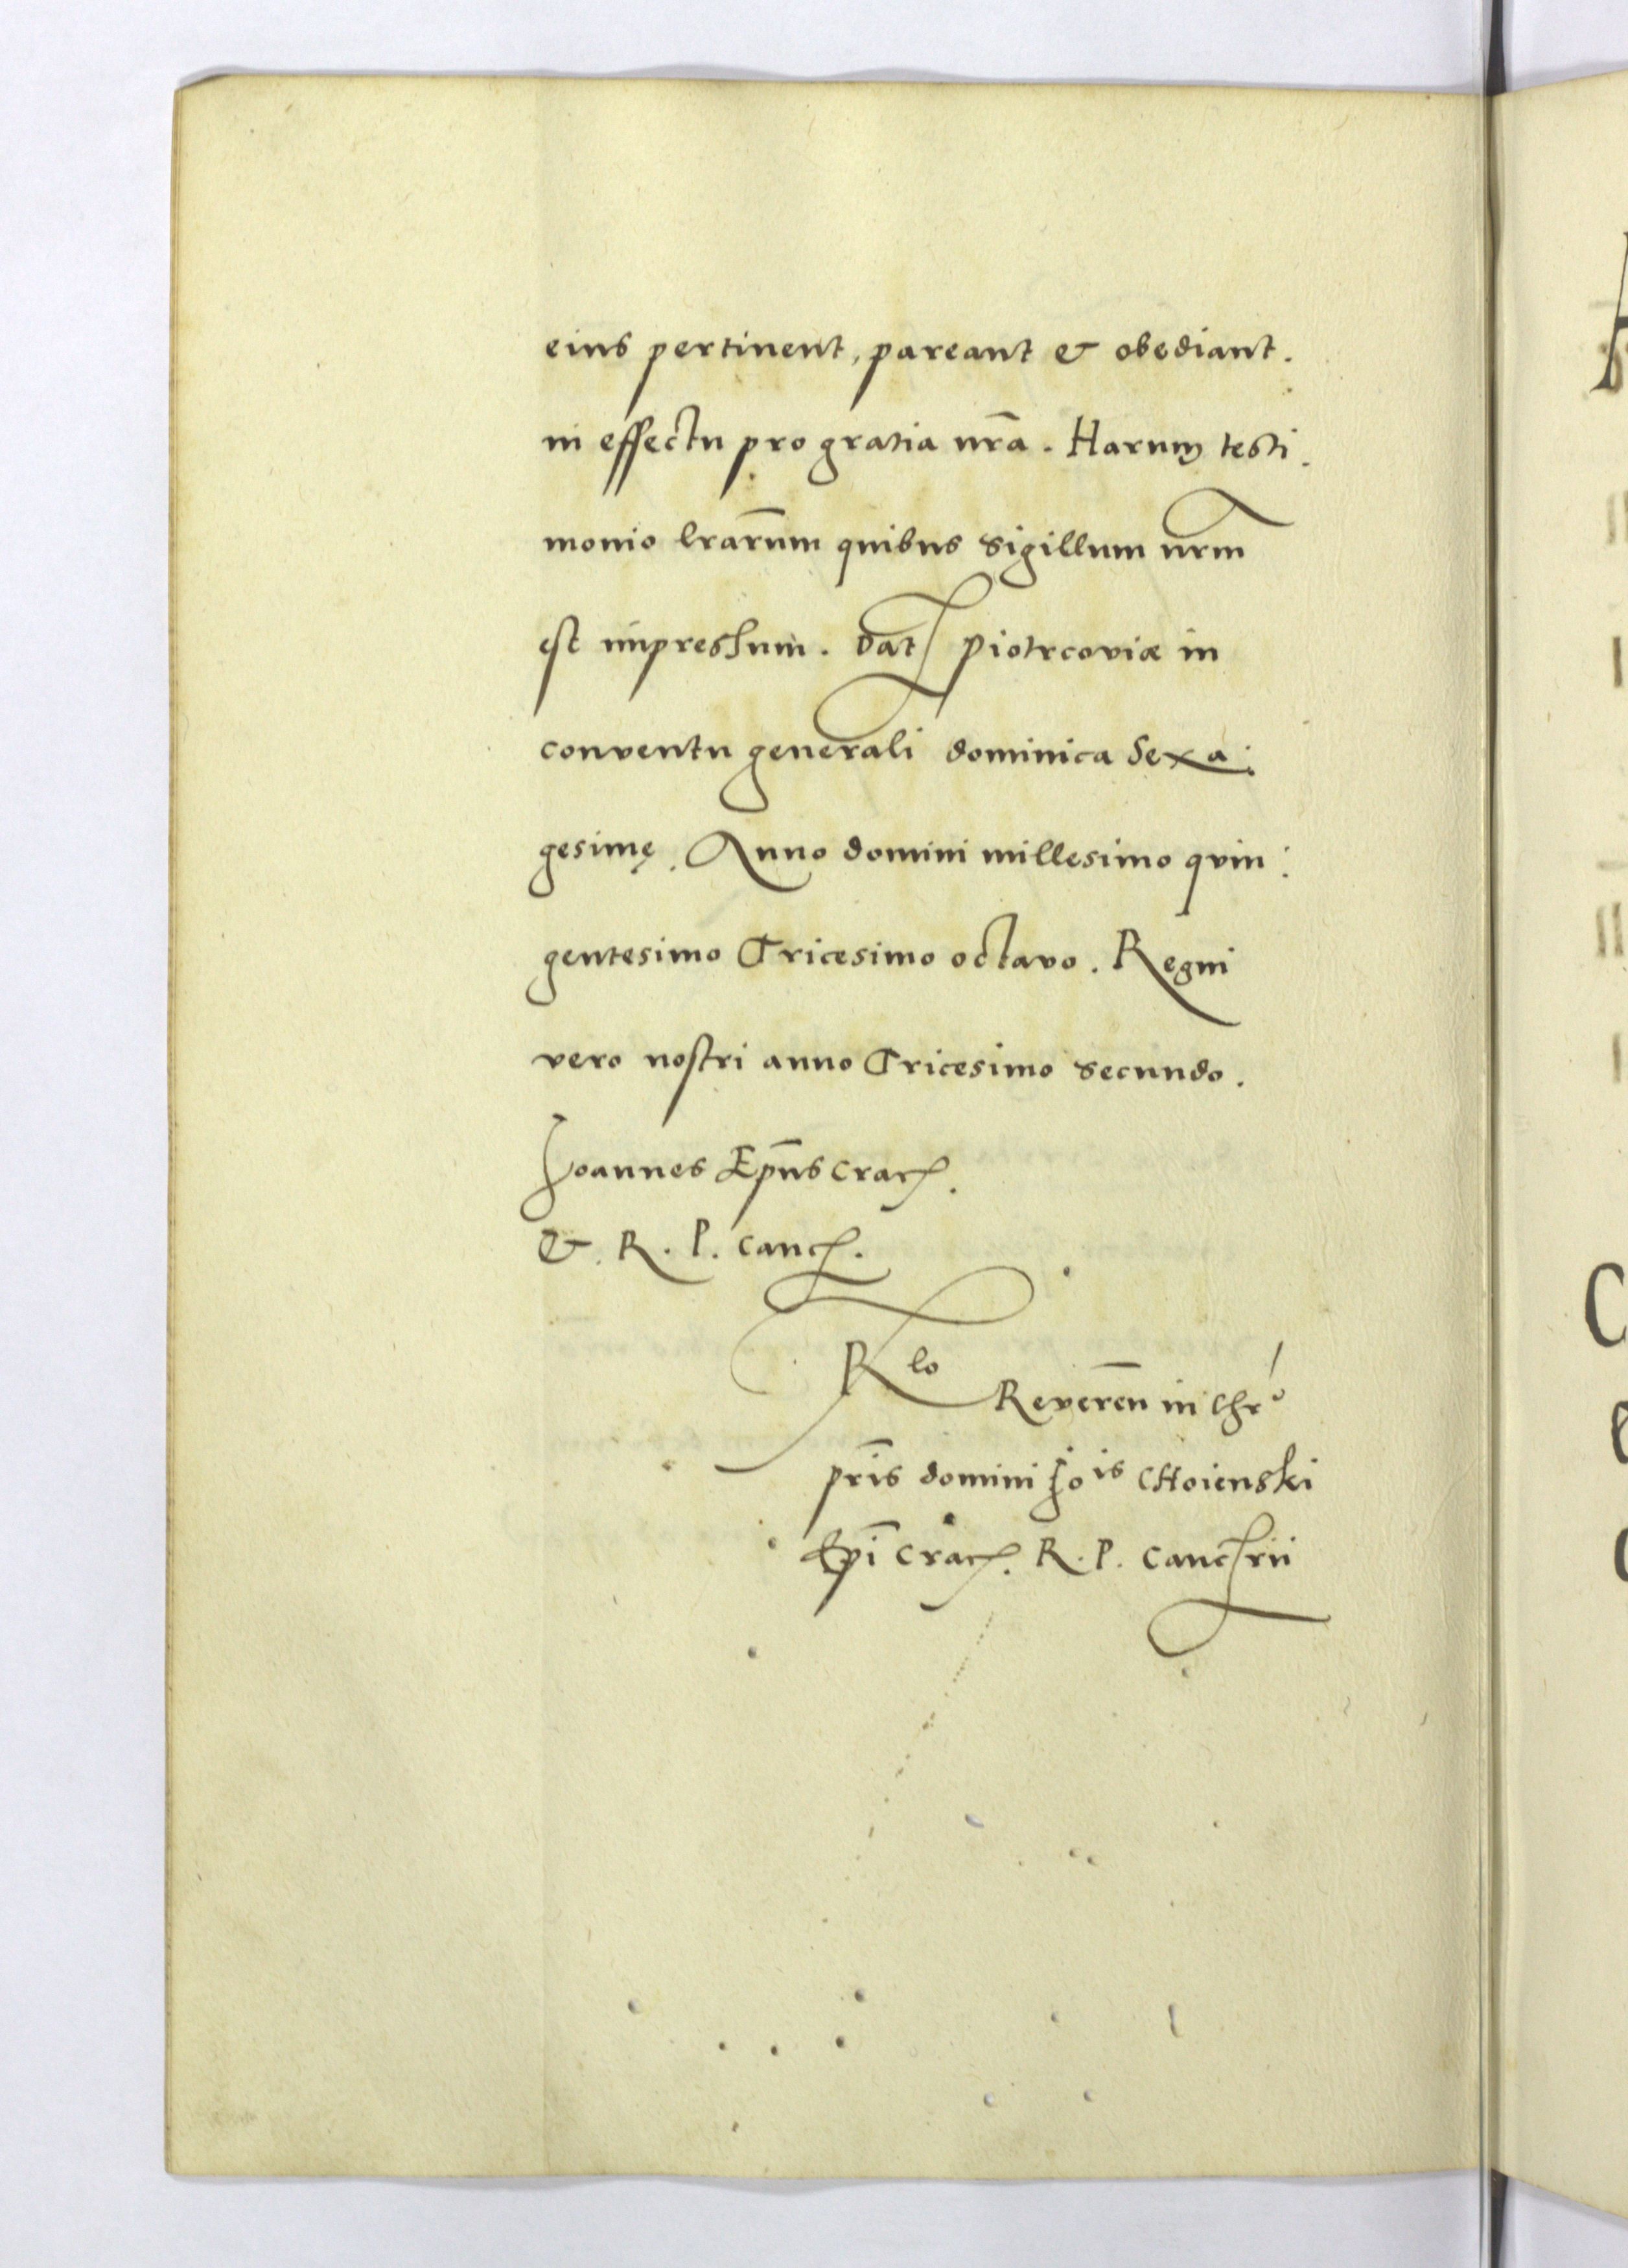 eius pertinent, pareant & obediant.
in effectu pro gratia nr̄a. Harum testi.
monio lr̄arum quibus sigillum nr̄m
est impressum. Dat Piotrcoviæ in
conventu generali dominica Sexa:
gesimę. Anno domini millesimo quin:
gentesimo Tricesimo octavo. Regni
vero nostri anno Tricesimo secundo.
Joannes Ep̄us Crac.
& R. P. Canc.
R lo
Reveren̄ in Chr°
pr̄is domini Jo is CHoienski
Ep̄i Crac. R. P. Canc rii